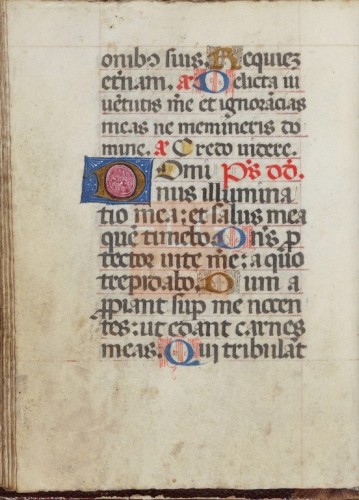 onibꝰ suis. Requiez
et̃nam. a. Delicta iu
uẽtutis mẽ et ignorãcias
meas ne memineris do
mine. a. Credo videre.
Domi p̃s dd.
nus illumina
tio mea; et salus mea
quẽ timebo. Dñs p
tector vite mẽ; a quo
trepidabo. Dum a
ppiant sup me nocen
tes: ut edant carnes
meas. Qui tribulãt